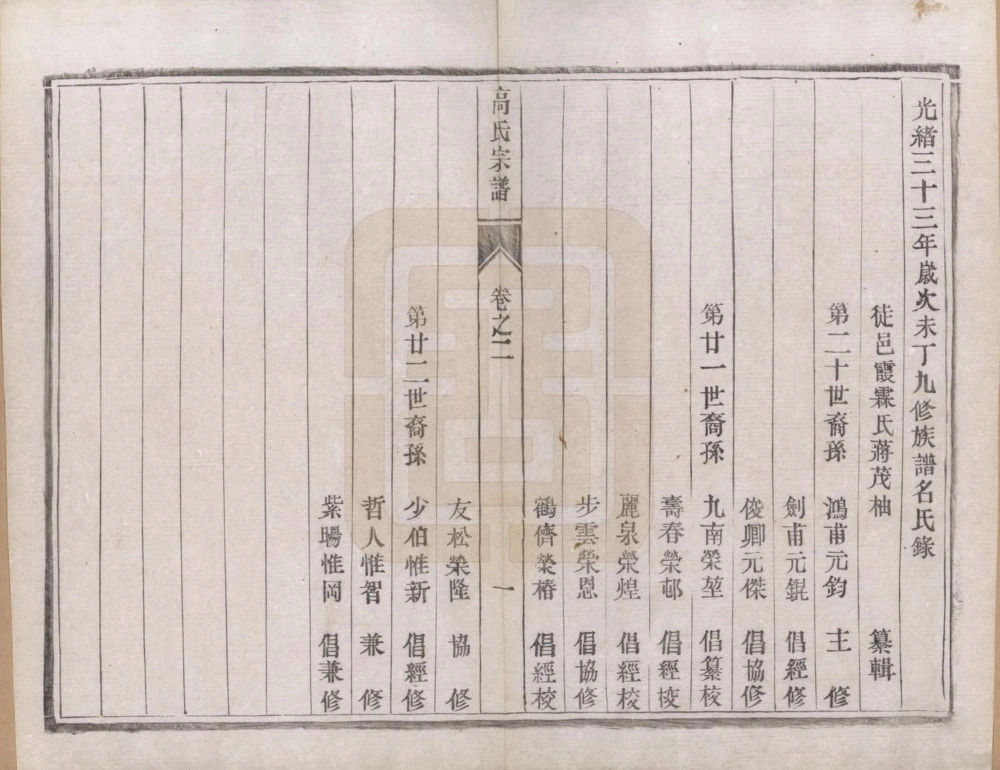 光緒三十三年歲次未丁九修族譜名氏錄
徒邑霞霖氏蔣茂柚 纂輯
第二十世裔孫 鴻甫元鈞 主修
劍甫元錕 倡經修
俊卿元傑 倡協修
第廿一世裔孫 九南榮堃 倡纂校
壽春榮邨 倡經校
麗泉榮煌 倡經校
步雲榮恩 倡協修
鶴儕榮椿 倡經校
高氏宗譜 卷之二 一
友松榮隆 協修
第廿二世裔孫 少伯惟新 倡經修
哲人惟智 兼修
紫暘惟岡 倡兼修